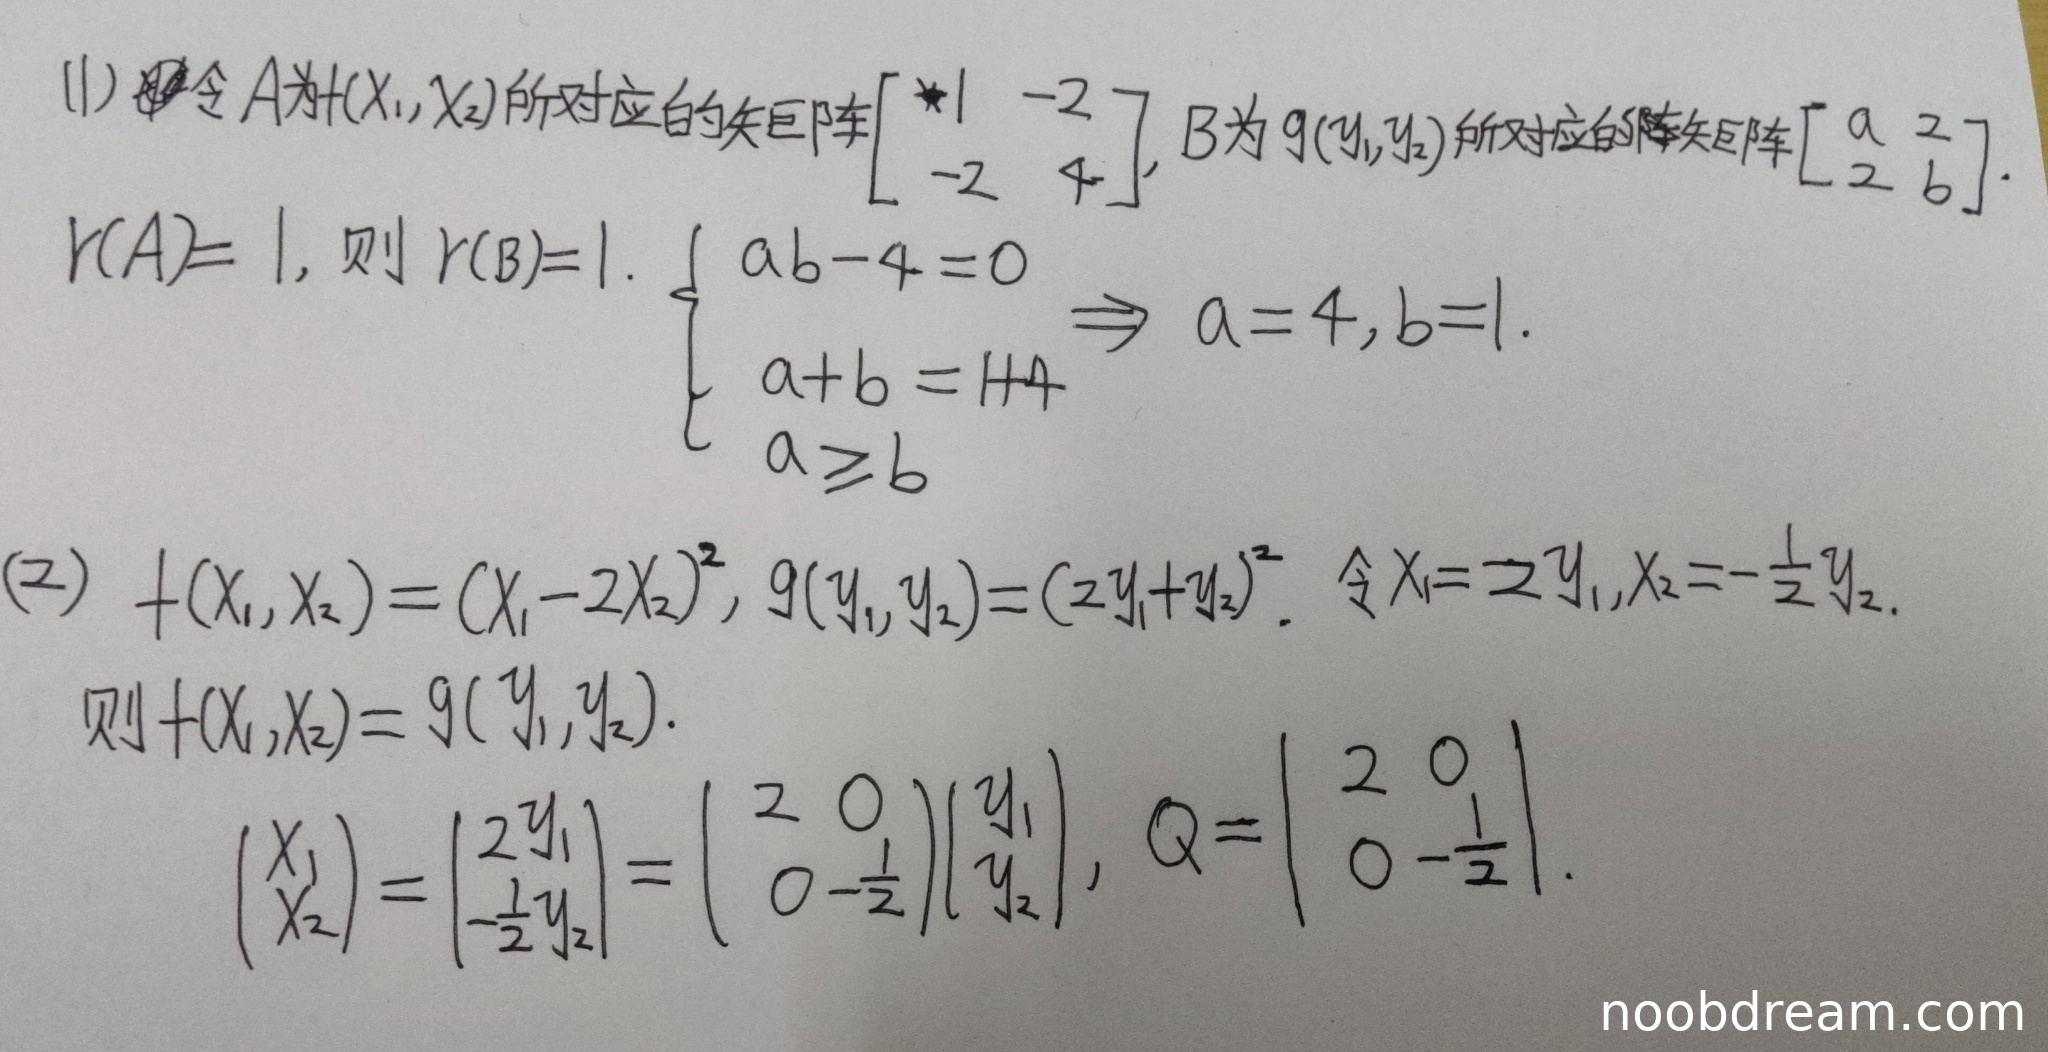 (1) 令A为f(x₁,x₂)所对应的矩阵[1 -2; -2 4], B为g(y₁,y₂)所对应的矩阵[a 2; 2 b].
r(A)=1, 则 r(B)=1. { ab-4=0
a+b=1+4
a≥b ⇒ a=4, b=1.
(2) f(x₁,x₂)=(x₁-2x₂)², g(y₁,y₂)=(2y₁+y₂)². 令x₁=2y₁, x₂=-1/2 y₂.
则f(x₁,x₂)=g(y₁,y₂).
(x₁; x₂)=(2y₁; -1/2 y₂)=(2 0; 0 -1/2)(y₁; y₂), Q=|2 0; 0 -1/2|.
noobdream.com